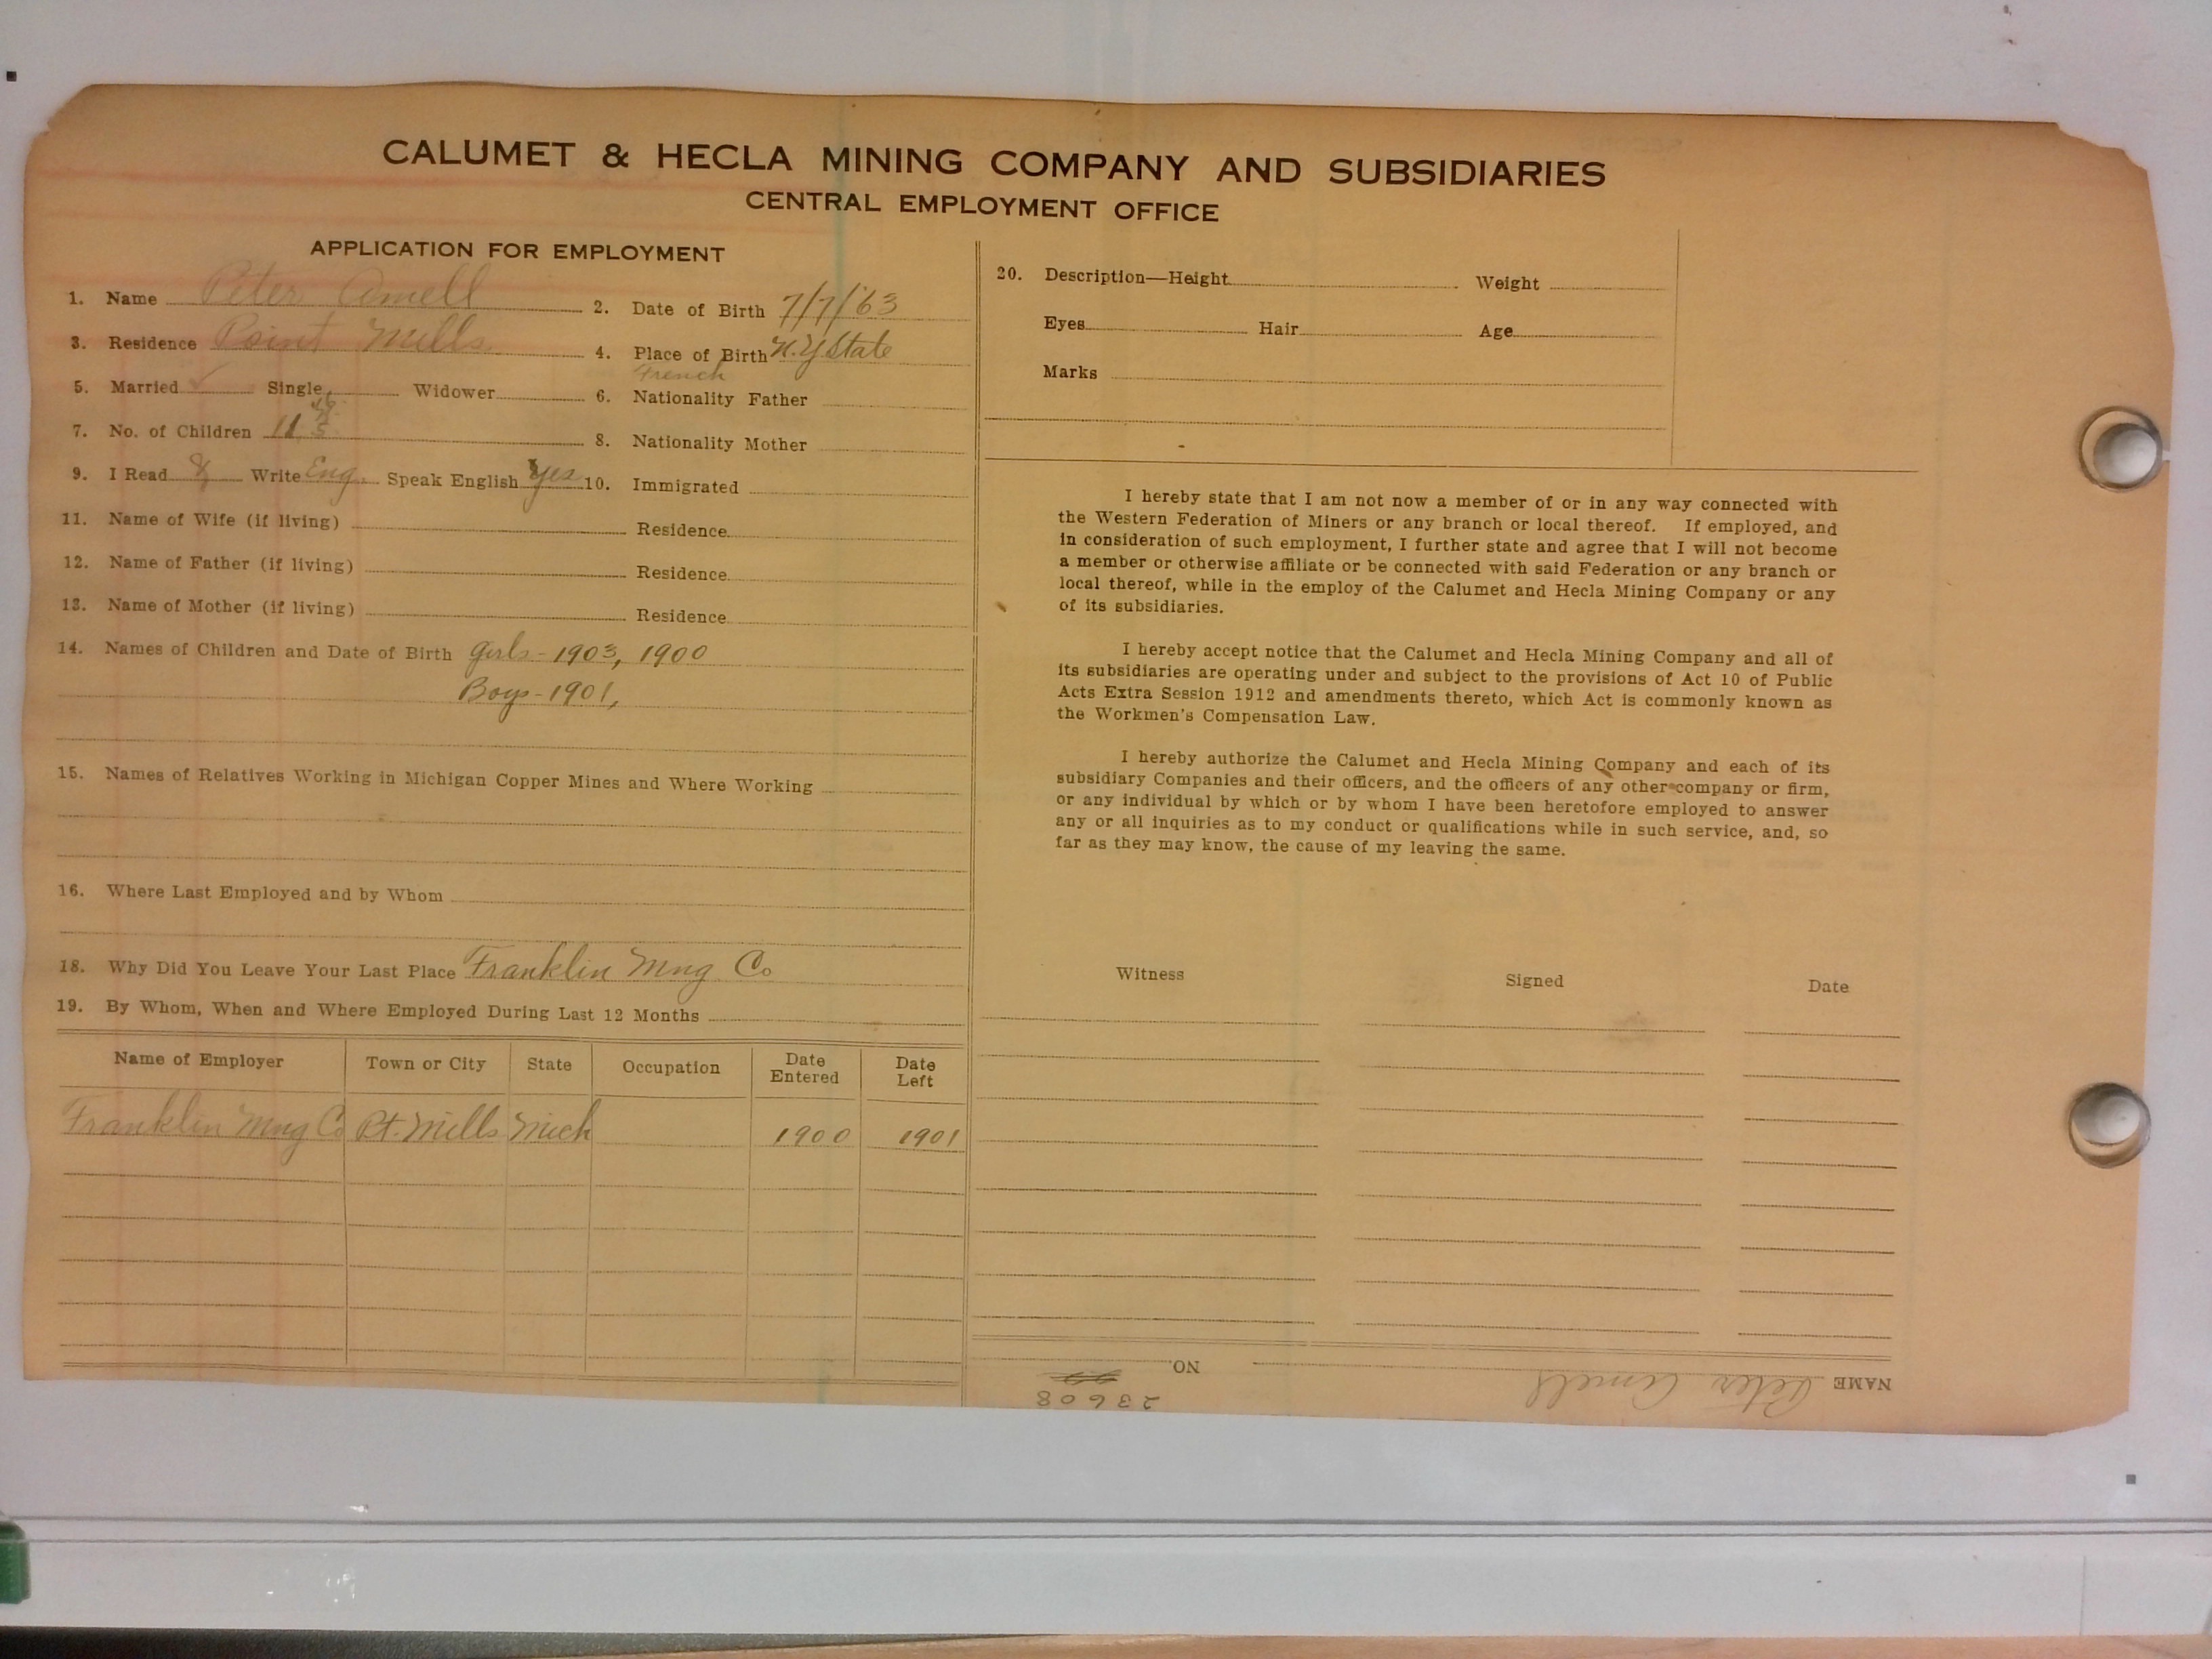 CALUMET & HECLA MINING COMPANY AND SUBSIDIARIES
CENTRAL EMPLOYMENT OFFICE
APPLICATION FOR EMPLOYMENT
1. Name Peter Amell 2. Date of Birth 7/7/'63
3. Residence Point Mills 4. Place of Birth N.Y State
French
5. Married ✓ Single Widower 6. Nationality Father
7. No. of Children 11 8. Nationality Mother
9. I Read & Write Eng. Speak English Yes 10. Immigrated
11. Name of Wife (if living) Residence
12. Name of Father (if living) Residence
13. Name of Mother (if living) Residence
14. Names of Children and Date of Birth Girls - 1903, 1900
Boys - 1901,
15. Names of Relatives Working in Michigan Copper Mines and Where Working
16. Where Last Employed and by Whom
18. Why Did You Leave Your Last Place Franklin Mng Co
19. By Whom, When and Where Employed During Last 12 Months
Name of Employer Town or City State Occupation Date Entered Date Left
Franklin Mng Co Pt. Mills Mich 1900 1901
20. Description—Height Weight
Eyes Hair Age
Marks
I hereby state that I am not now a member of or in any way connected with
the Western Federation of Miners or any branch or local thereof. If employed, and
in consideration of such employment, I further state and agree that I will not become
a member or otherwise affiliate or be connected with said Federation or any branch or
local thereof, while in the employ of the Calumet and Hecla Mining Company or any
of its subsidiaries.
I hereby accept notice that the Calumet and Hecla Mining Company and all of
its subsidiaries are operating under and subject to the provisions of Act 10 of Public
Acts Extra Session 1912 and amendments thereto, which Act is commonly known as
the Workmen's Compensation Law.
I hereby authorize the Calumet and Hecla Mining Company and each of its
subsidiary Companies and their officers, and the officers of any other company or firm,
or any individual by which or by whom I have been heretofore employed to answer
any or all inquiries as to my conduct or qualifications while in such service, and, so
far as they may know, the cause of my leaving the same.
Witness Signed Date
NAME Peter Amell NO. 23608